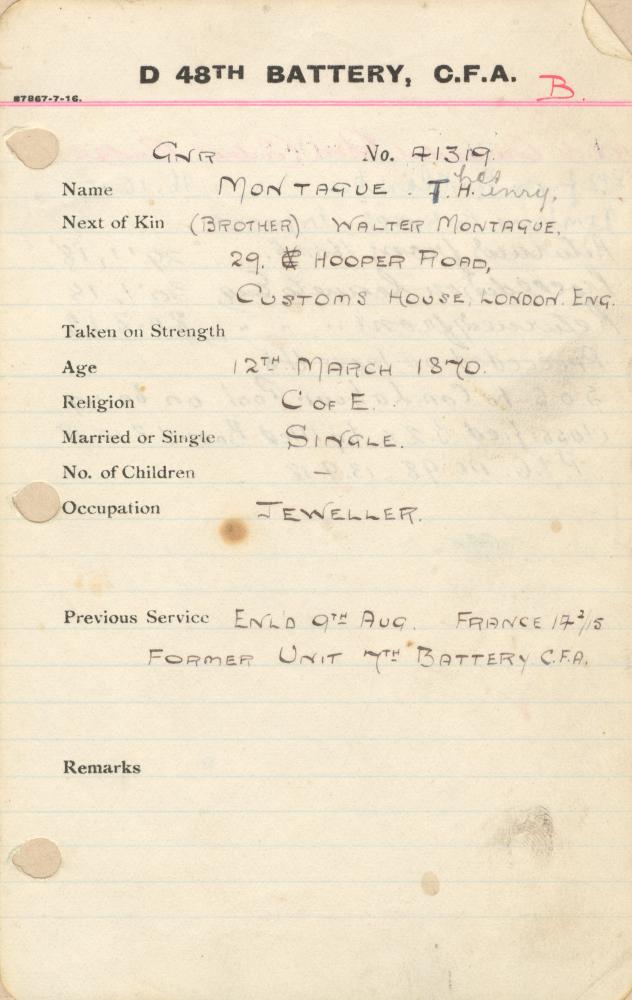 D 48TH BATTERY, C.F.A.
B.
87867-7-16.
GNR No. 41319
Name MONTAGUE. Thos H.enry.
Next of Kin (BROTHER) WALTER MONTAGUE,
29. HOOPER ROAD,
CUSTOMS HOUSE, LONDON. ENG.
Taken on Strength
Age 12TH MARCH 1870.
Religion C OF E.
Married or Single SINGLE.
No. of Children —
Occupation JEWELLER.
Previous Service ENL'D 9TH AUG. FRANCE 17 2/15
FORMER UNIT 7TH BATTERY C.F.A.
Remarks